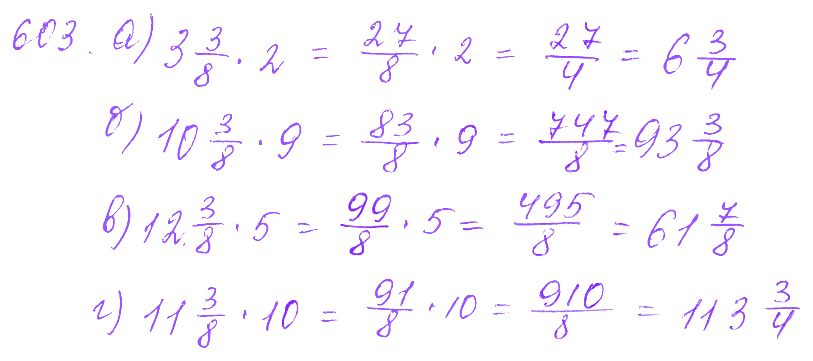 603. а) 3 3/8 · 2 = 27/8 · 2 = 27/4 = 6 3/4
б) 10 3/8 · 9 = 83/8 · 9 = 747/8 = 93 3/8
в) 12 3/8 · 5 = 99/8 · 5 = 495/8 = 61 7/8
г) 11 3/8 · 10 = 91/8 · 10 = 910/8 = 113 3/4